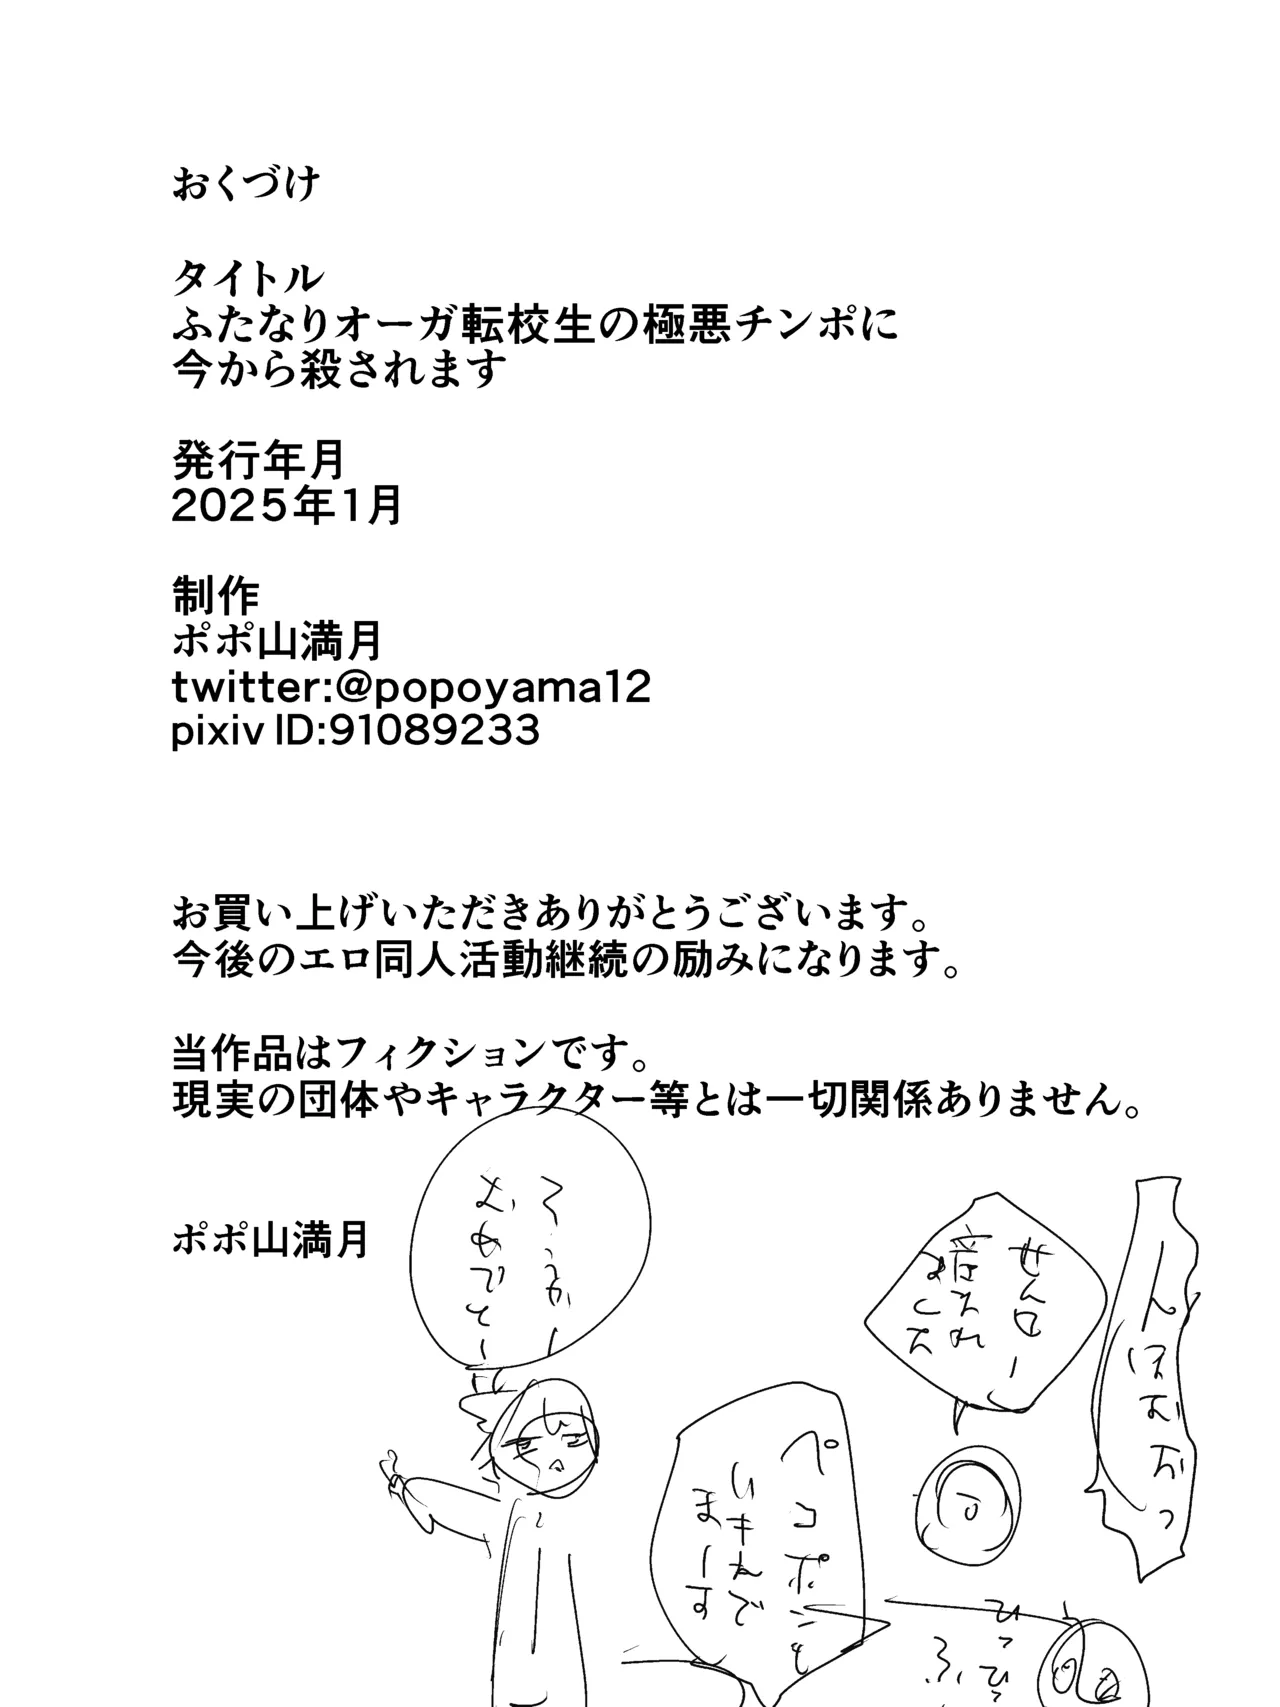 おくづけ
タイトル
ふたなりオーガ転校生の極悪チンポに
今から殺されます
発行年月
2025年1月
制作
ポポ山満月
twitter:@popoyama12
pixiv ID:91089233
お買い上げいただきありがとうございます。
今後のエロ同人活動継続の励みになります。
当作品はフィクションです。
現実の団体やキャラクター等とは一切関係ありません。
ポポ山満月
おめでとー
んほおおっ
ペコポンも
いキねで
まーす